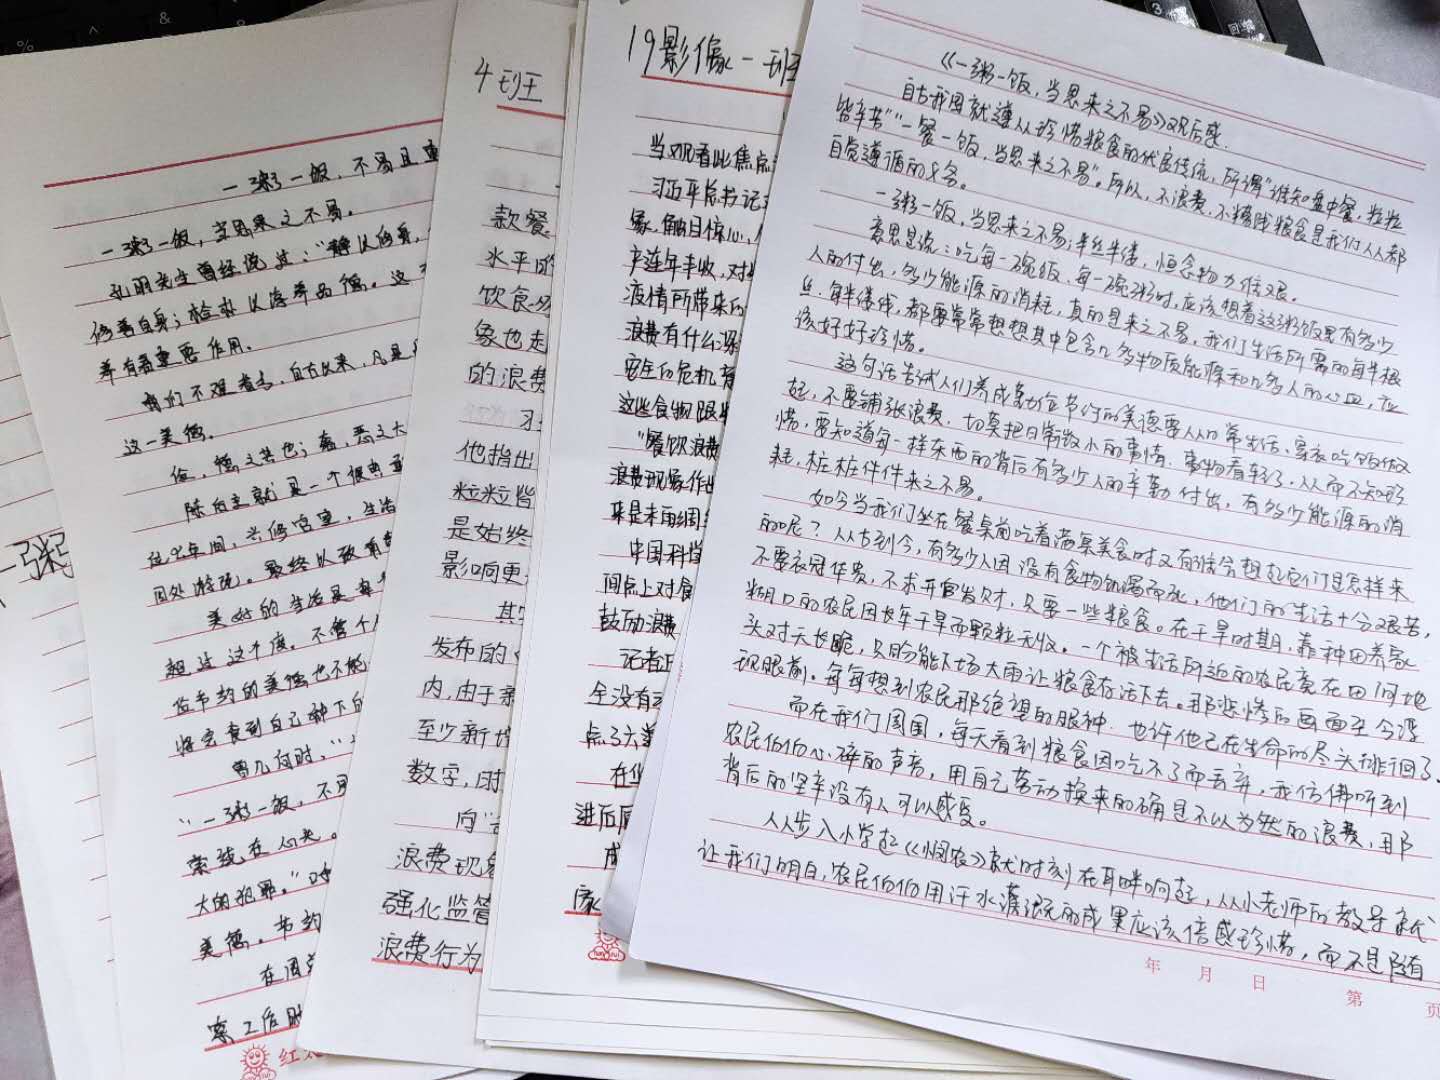 一粥一饭,不易且重
一粥一饭,当思来之不易。
孔明先生曾经说过:"静以修身,
修养自身;检朴以涵养品德。这
养有着重要作用。
我们不难看出,自古以来,凡是
这一美德。
俭,德之共也;奢,恶之大
陈后主就是一个很典型
位年间,兴修宫室,生活
因处游玩。最终以致有
美好的生活是每
超过这个度。不管个人
俭节约的美德也不能
将会食到自己种下的
曾几何时,"
"一粥一饭,不易
萦绕在心头。
大的犯罪。"时
美德。节约
在周
家工作时
红太
一粥
4班
款餐
水平的
饮食外
象也走
的浪费
习
他指出
粒粒皆
是始终
影响更
其实
发布的《
内,由于
至少新增
数字,时
向"舌
浪费现象
强化监管
浪费行为
19影像一班
当观看此焦点
习近平总书记
象,触目惊心,
产连年丰收,对
疫情所带来的
浪费有什么深
安全的危机意
这些食物跟
"餐饮浪费
浪费现象作出
来是未雨绸
中国科学
间点上对食
鼓励浪费
记者
全没有
点了六道
在
进后厨
成
家
《一粥一饭,当思来之不易》观后感.
自古我国就遵从珍惜粮食的优良传统,所谓"谁知盘中餐,粒粒
皆辛苦""一餐一饭,当思来之不易"。所以,不浪费,不糟蹋粮食是我们人人都
自觉遵循的义务。
一粥一饭,当思来之不易;半丝半缕,恒念物力维艰。
意思是说:吃每一碗饭、每一碗粥时,应该想着这粥饭里有多少
人的付出,多少能源的消耗,真的是来之不易,我们生活所需的每半根
丝、每半缕线,都要常常想想其中包含了多物质能源和多人的心血,应
该好好珍惜。
这句话告诫人们养成勤俭节约的美德要从日常生活、穿衣吃饭做
起,不要铺张浪费,切莫把日常微小的事情、事物看轻了,从而不知珍
惜,要知道每一样东西的背后有多少人的辛勤付出,有多少能源的消
耗,桩桩件件来之不易。
如今当我们坐在餐桌前吃着满桌美食时又有谁会想起它们是怎样来
的呢?从古到今,有多少人因没有食物饥渴而死,他们的生活十分艰苦,
不要衣冠华贵,不求升官发财,只要一些粮食。在干旱时期,靠种田养家
糊口的农民因长年干旱而颗粒无收。一个被生活所迫的农民竟在田间地
头对天长跪,只盼能下场大雨让粮食存活下去。那悲惨的画面至今浮
现眼前。每每想到农民那绝望的眼神,也许他已在生命的尽头徘徊了.
而在我们周围,每天看到粮食因吃不了而丢弃,我仿佛听到
农民伯伯心碎的声音,用自己劳动换来的确是不以为然的浪费,用那
背后的坚辛没有人可以感受。
从步入小学起《悯农》就时刻在耳畔响起,从小老师的教导就
让我们明白,农民伯伯用汗水灌溉的成果应该倍感珍惜,而不是随
年 月 日 第 页